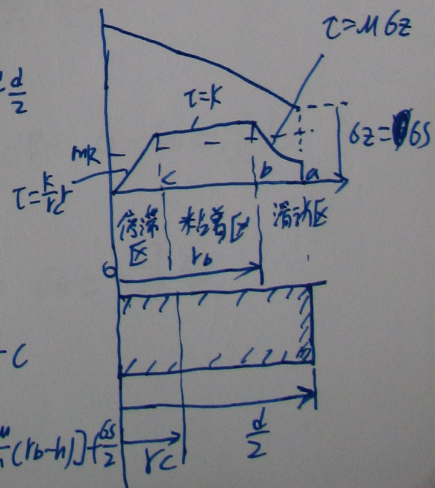 τ=μσz
d/2
τ=K
σz=σs
mk
τ=K/rc r
c
b
a
停滞区
粘着区
滑动区
rb
o
-C
(rb-h)]+σs/2
rc
d/2